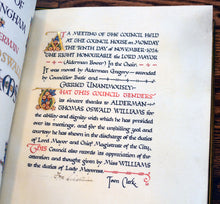 OF
NGHAM
ALDERMAN
At A MEETING OF THE COUNCIL HELD
AT THE COUNCIL HOUSE on MONDAY
THE TENTH DAY of NOVEMBER 1924
THE RIGHT HONOURABLE the LORD MAYOR
(Alderman Bower) In the Chair.
It was moved by Alderman Gregory — seconded
by Councillor Baife and
CARRIED UNANIMOUSLY:
THAT THIS COUNCIL TENDERS
its sincere thanks to ALDERMAN
THOMAS OSWALD WILLIAMS for the
ability and dignity with which he has presided
over its deliberations, and for the efficient
manner in which he has discharged the duties
of Lord Mayor and Chief Magistrate of the City.
THIS Council also records its appreciation of the
attention and thought given by Miss WILLIAMS
to the duties of Lady Mayoress.
Town Clerk